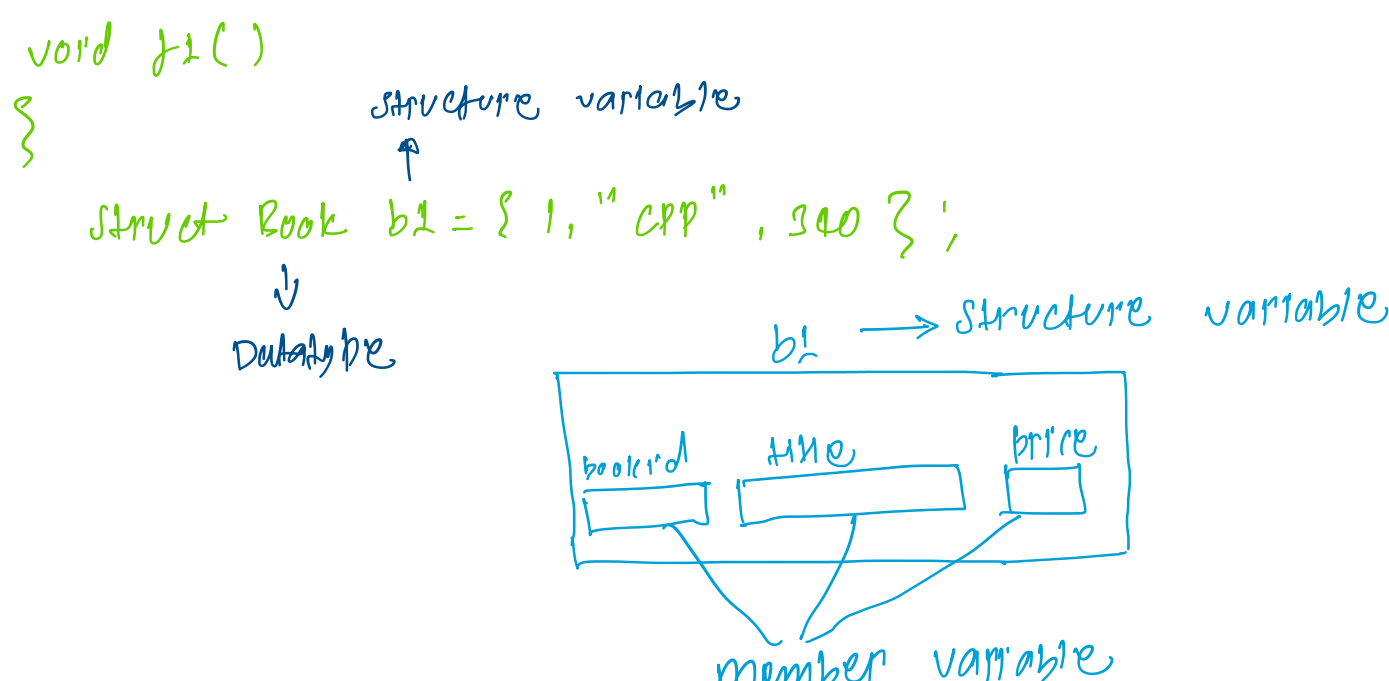 void f1( )
{
structure variable
struct Book b1 = { 1, "CPP", 340 } ;
Datatype
b1 → structure variable
bookid title price
member variable